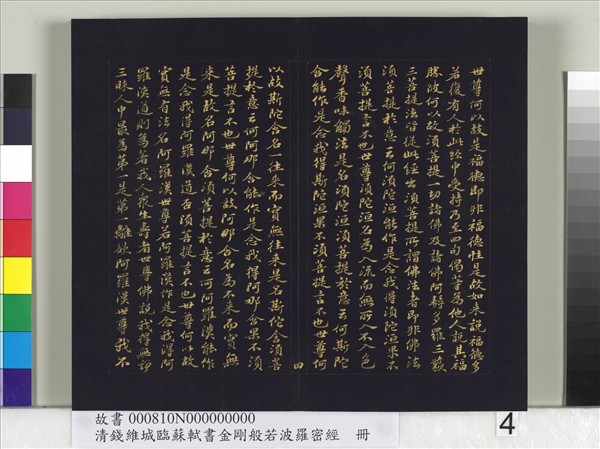 世尊何以故是福德即非福德性是故如來說福德多
若復有人於此經中受持乃至四句偈等為他人說其福
勝彼何以故須菩提一切諸佛及諸佛阿耨多羅三藐
三菩提法皆從此經出須菩提所謂佛法者即非佛法
須菩提於意云何須陀洹能作是念我得須陀洹果不
須菩提言不也世尊須陀洹名為入流而無所入不入色
聲香味觸法是名須陀洹須菩提於意云何斯陀
含能作是念我得斯陀洹果不須菩提言不也世尊何
以故斯陀含名一往來而實無往來是名斯陀含須菩
提於意云何阿那含能作是念我得阿那含果不須
菩提言不也世尊何以故阿那含名為不來而實無
來是故名阿那含須菩提於意云何阿羅漢能作
是念我得阿羅漢道否須菩提言不也世尊何以故
實無有法名阿羅漢世尊若阿羅漢作是念我得阿
羅漢道則為著我人眾生壽者世尊佛說我得無諍
三昧人中最為第一是第一離欲阿羅漢世尊我不
四
故書 000810N000000000
清錢維城臨蘇軾書金剛般若波羅密經 冊
4